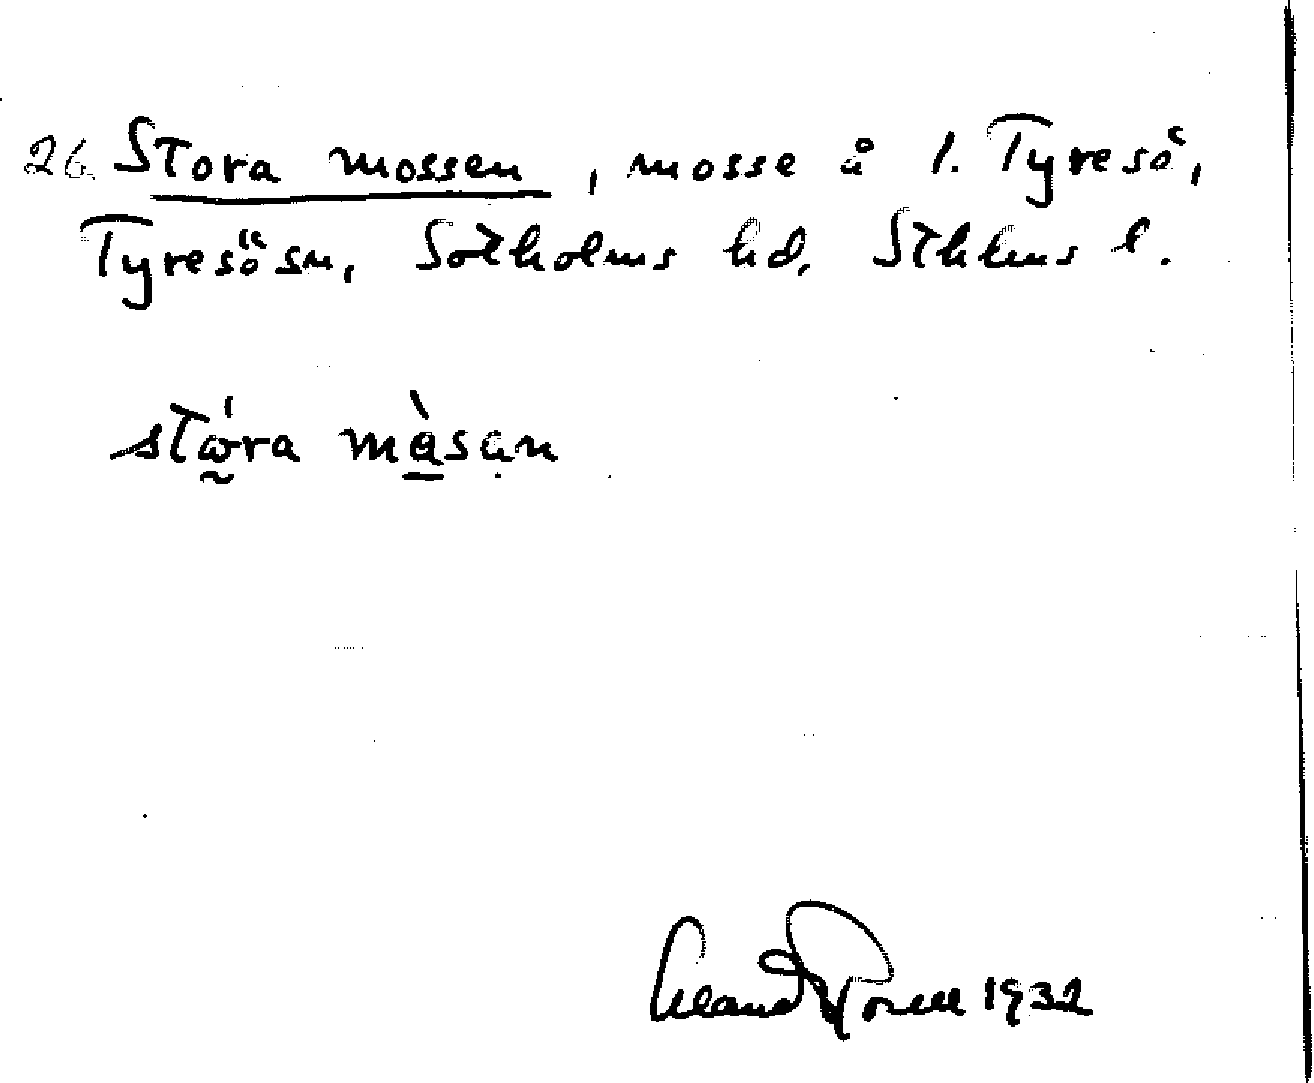 26. Stora mossen, mosse å l. Tyresö,
Tyresösn, Sotholms hd. Sthlms l.
stώ̰ra mà̱san
1932